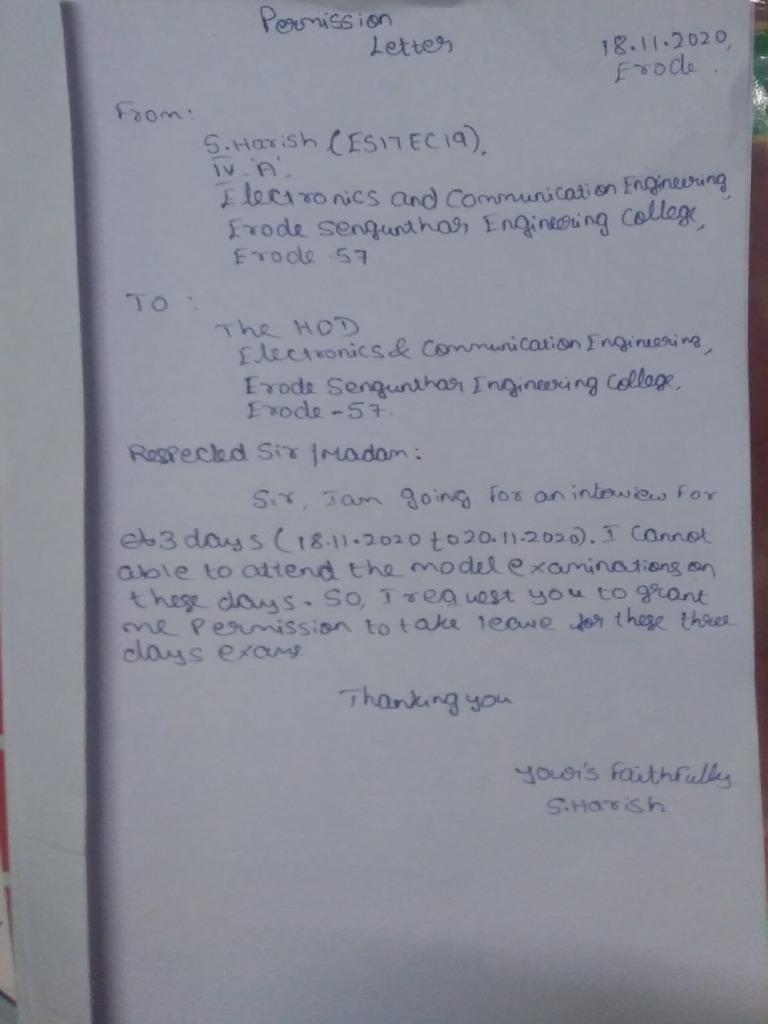 Permission
Letter
18.11.2020,
Erode.
From:
S.Harish (ES17EC19),
IV 'A'
Electronics and Communication Engineering,
Erode Sengunthar Engineering College,
Erode 57
TO :
The HOD
Electronics & Communication Engineering,
Erode Sengunthar Engineering College,
Erode - 57.
Respected Sir /Madam:
Sir, I am going for an interview for
3 days (18.11.2020 to 20.11.2020). I cannot
able to attend the model examinations on
these days. So, I request you to grant
me permission to take leave for these three
days exams
Thanking you
Your's Faithfully
S.Harish